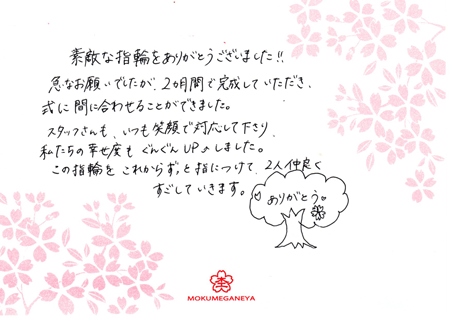 素敵な指輪をありがとうございました!!
急なお願いでしたが、2カ月間で完成していただき、
式に間に合わせることができました。
スタッフさんも、いつも笑顔で対応して下さり、
私たちの幸せ度もぐんぐんUP♪しました。
この指輪をこれからずっと指につけて、2人仲良く
すごしていきます。
ありがとう。
MOKUMEGANEYA